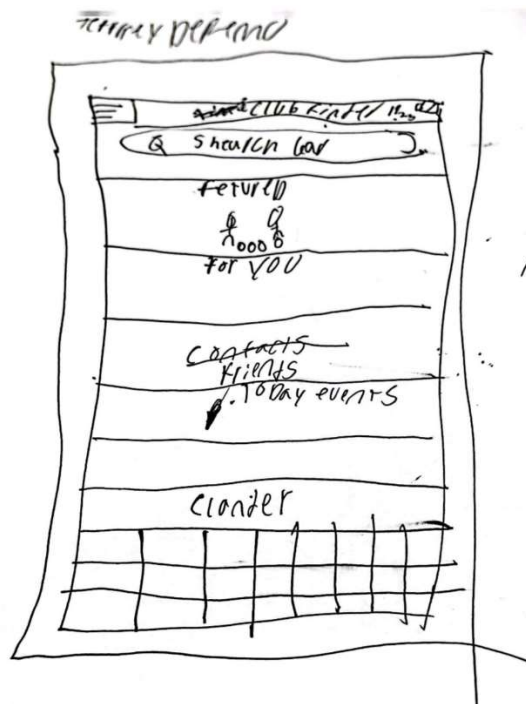 Club finder
Q shearch bar
fetureD
for you
Contacts
friends
. TODay events
Clander